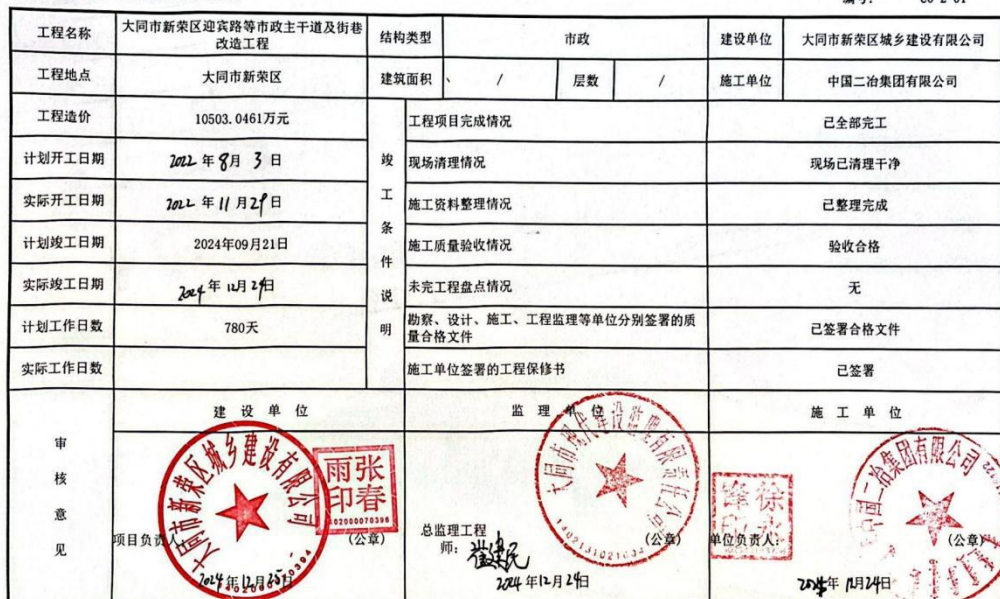 编号: C6-2-01
工程名称
大同市新荣区迎宾路等市政主干道及街巷
改造工程
结构类型
市政
建设单位
大同市新荣区城乡建设有限公司
工程地点
大同市新荣区
建筑面积
/
层数
/
施工单位
中国二冶集团有限公司
工程造价
10503.0461万元
竣工条件说明
工程项目完成情况
已全部完工
计划开工日期
2022年8月3日
现场清理情况
现场已清理干净
实际开工日期
2022年11月29日
施工资料整理情况
已整理完成
计划竣工日期
2024年09月21日
施工质量验收情况
验收合格
实际竣工日期
2024年12月24日
未完工程盘点情况
无
计划工作日数
780天
勘察、设计、施工、工程监理等单位分别签署的质
量合格文件
已签署合格文件
实际工作日数
施工单位签署的工程保修书
已签署
审核意见
建设单位
监理单位
施工单位
大同市新荣区城乡建设有限公司
张春雨印
大同市现代建设监理有限责任公司
徐永锋印
中国二冶集团有限公司
项目负责人:
(公章)
总监理工程
师: 崔建民
(公章)
单位负责人:
(公章)
2024年12月25日
2024年12月24日
2024年12月24日